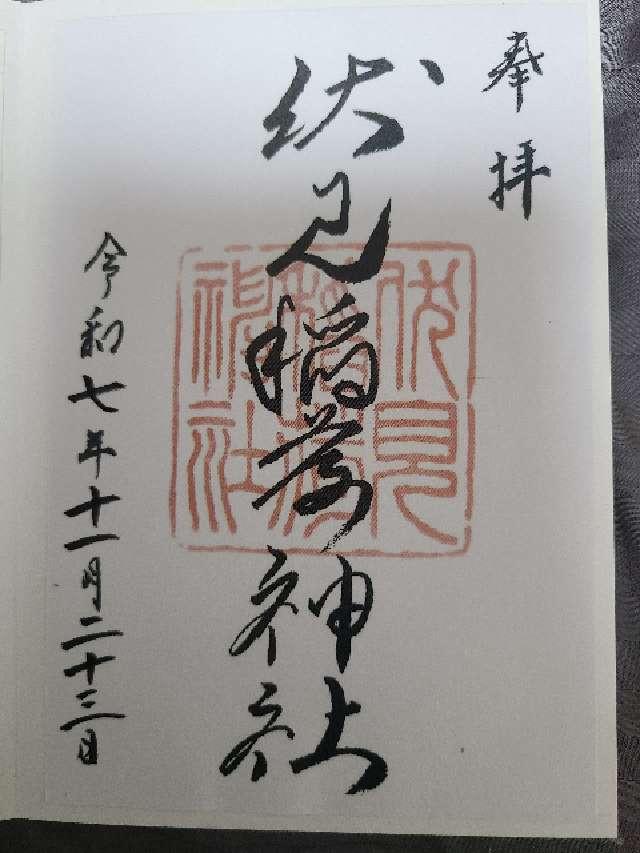 奉拝
伏見稲荷神社
伏見稲荷神社
令和七年十一月二十三日